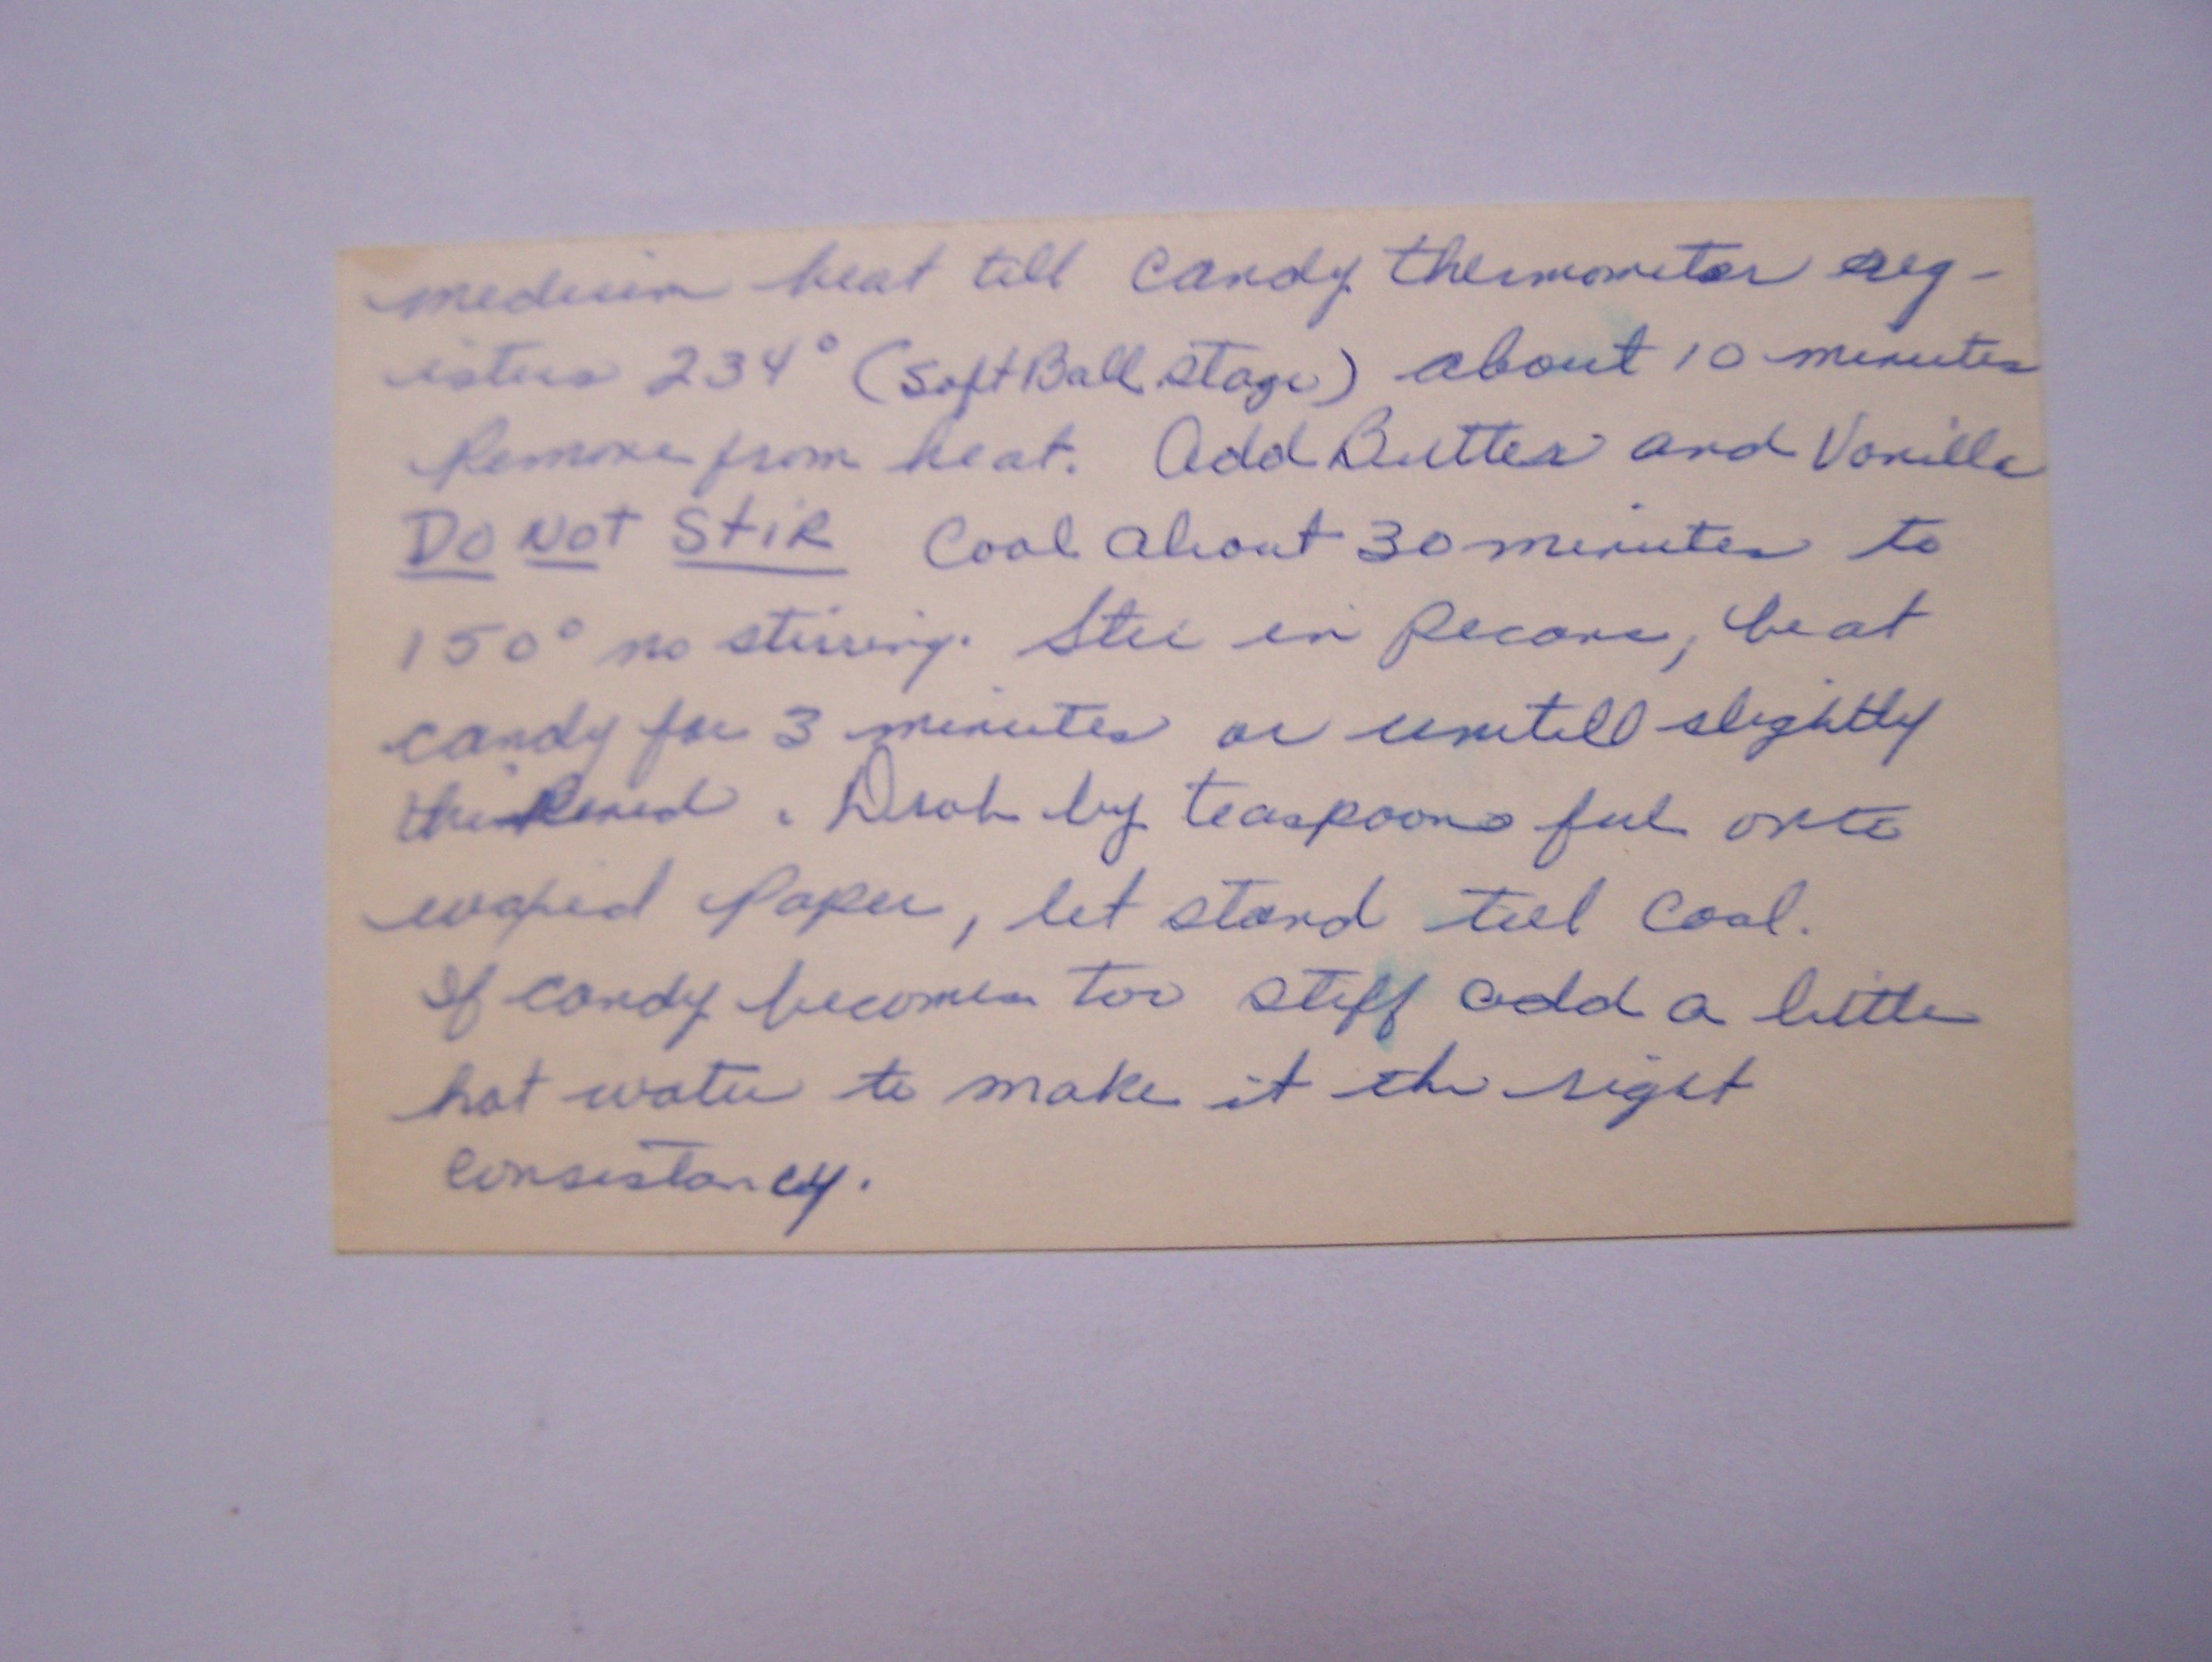 medium heat till candy thermometer reg-
isters 234° (Soft Ball stage) about 10 minutes
Remove from heat. Add Butter and Vanilla
DO NOT STIR Cool about 30 minutes to
150° no stirring. Stir in Pecans, beat
candy for 3 minutes or untill slightly
thickened. Drop by teaspoons ful onto
waxed Paper, let stand till Cool.
If candy becomes too stiff add a little
hot water to make it the right
consistancy.